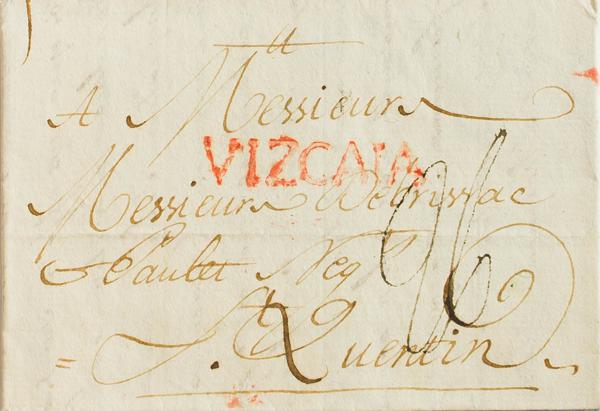 A Messieurs
VIZCAIA
Messieurs Debrissac
& Paulet Neg.ts
= S.t Quentin